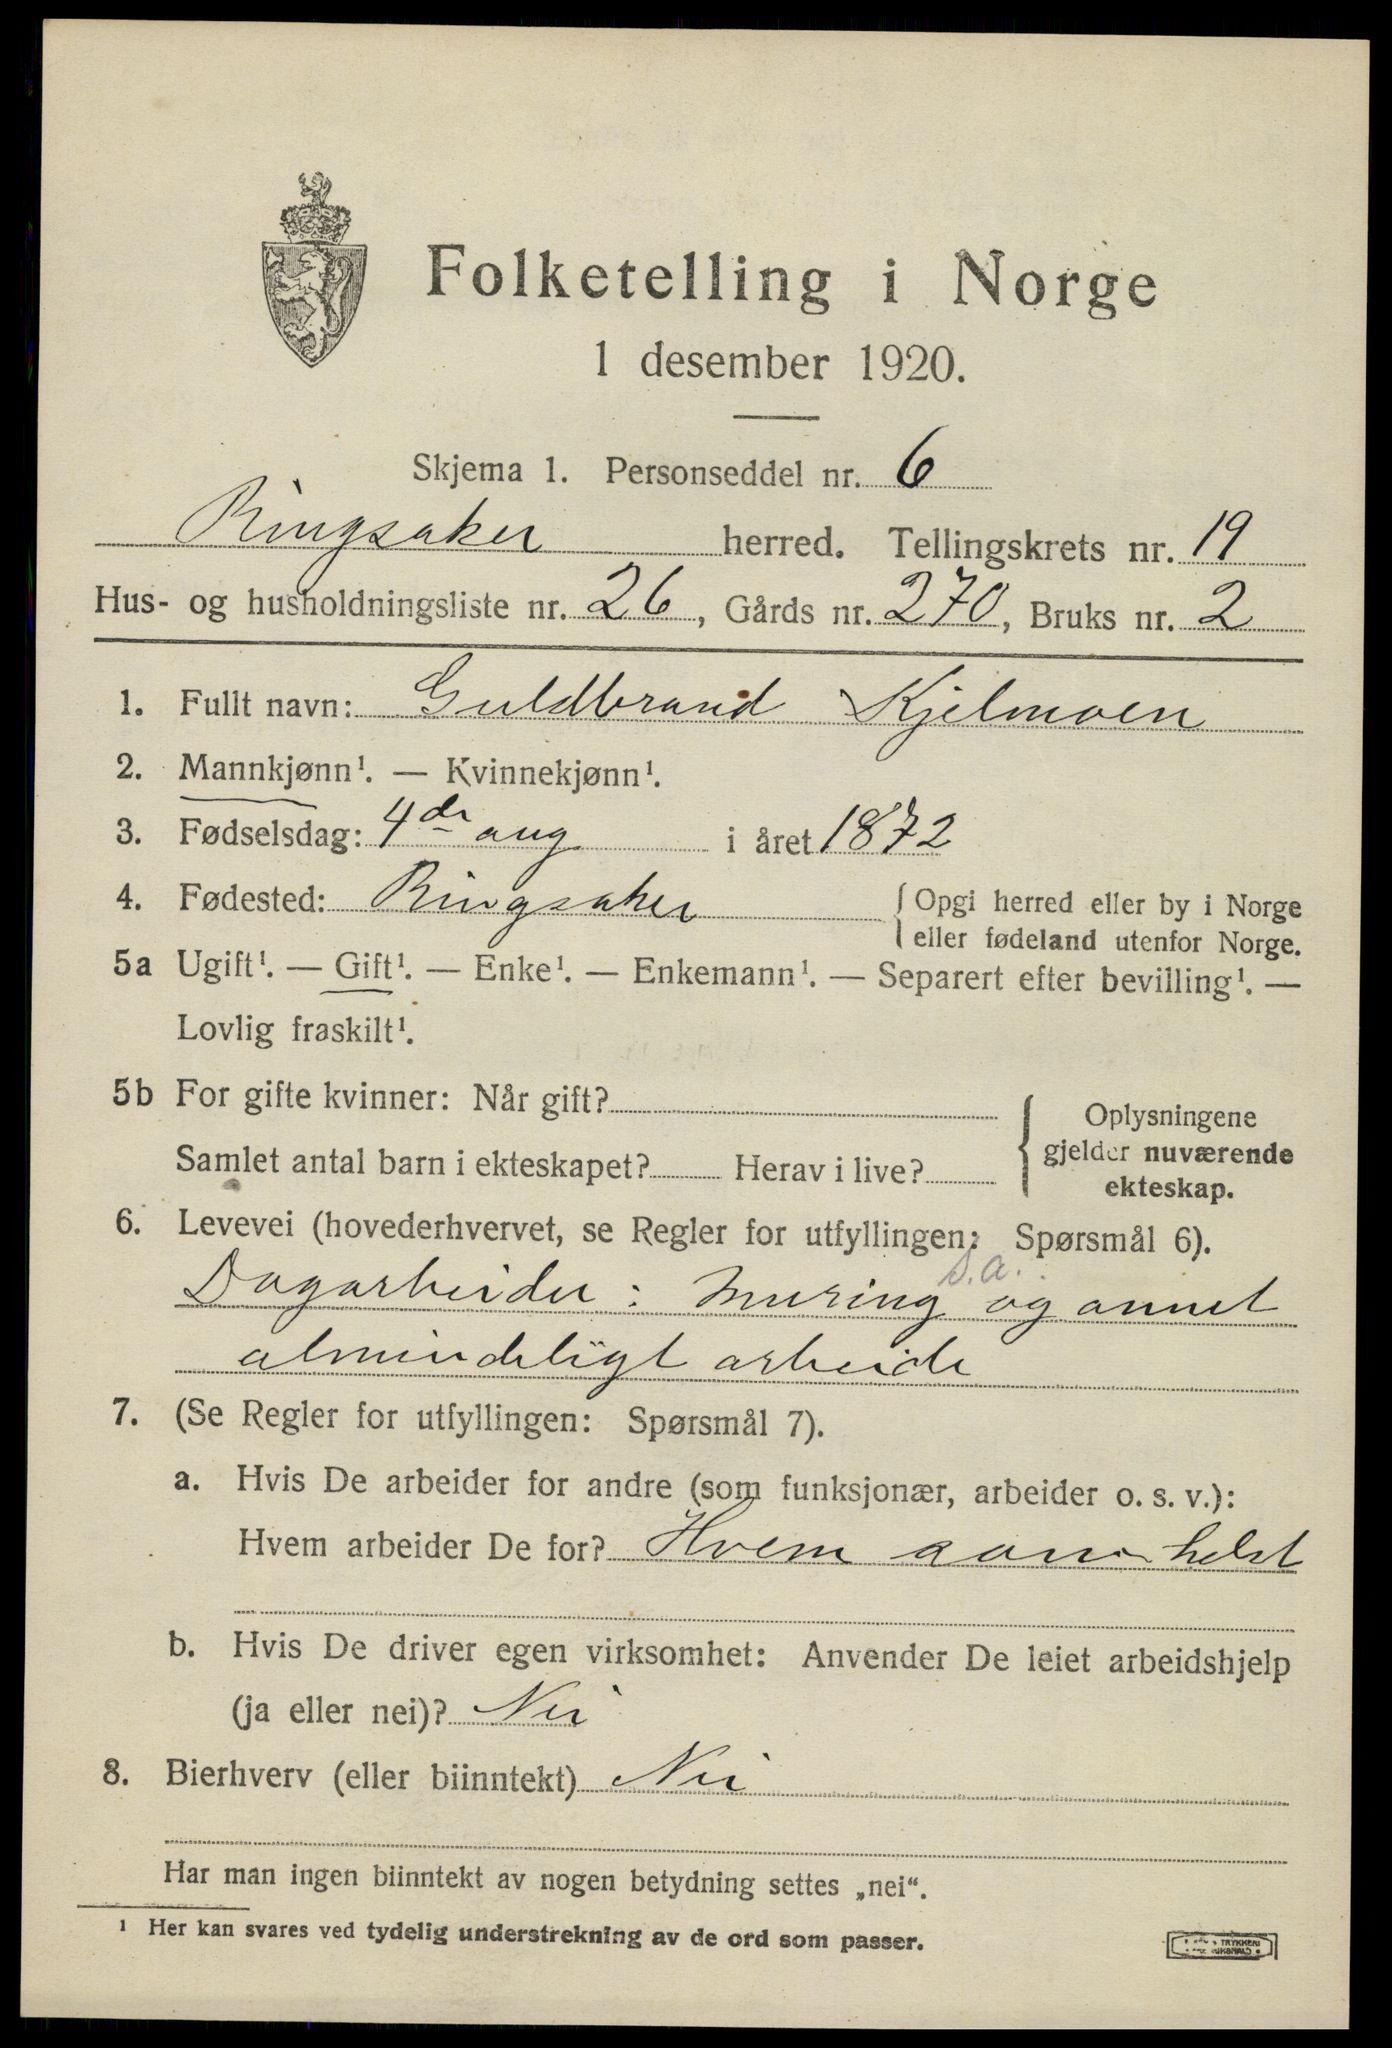 Folketelling i Norge
1 desember 1920.
Skjema 1. Personseddel nr. 6
Ringsaker herred. Tellingskrets nr. 19
Hus- og husholdningsliste nr. 26, Gårds nr. 270, Bruks nr. 2
1. Fullt navn: Guldbrand Kjelmoen
2. Mannkjønn¹. — Kvinnekjønn¹.
3. Fødselsdag: 4de aug i året 1872
4. Fødested: Ringsaker { Opgi herred eller by i Norge
eller fødeland utenfor Norge.
5a Ugift¹. — Gift¹. — Enke¹. — Enkemann¹. — Separert efter bevilling¹. —
Lovlig fraskilt¹.
5b For gifte kvinner: Når gift? { Oplysningene
gjelder nuværende
ekteskap.
Samlet antal barn i ekteskapet? Herav i live?
6. Levevei (hovederhvervet, se Regler for utfyllingen: Spørsmål 6).
D.a.
Dagarbeider: muring og annet
almindeligt arbeide
7. (Se Regler for utfyllingen: Spørsmål 7).
a. Hvis De arbeider for andre (som funksjonær, arbeider o. s. v.):
Hvem arbeider De for? Hvem som helst
b. Hvis De driver egen virksomhet: Anvender De leiet arbeidshjelp
(ja eller nei)? Nei
8. Bierhverv (eller biinntekt) Nei
Har man ingen biinntekt av nogen betydning settes „nei“.
¹ Her kan svares ved tydelig understrekning av de ord som passer.
TRYKKERI